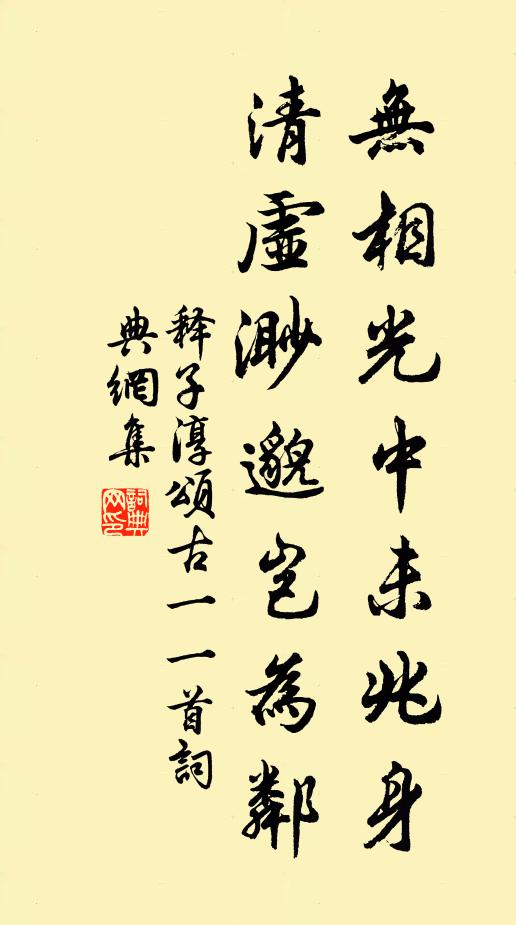 無相光中未兆身
清虛渺邈豈為鄰
釋子淳頌古一一首詞
典網集
詞典網印